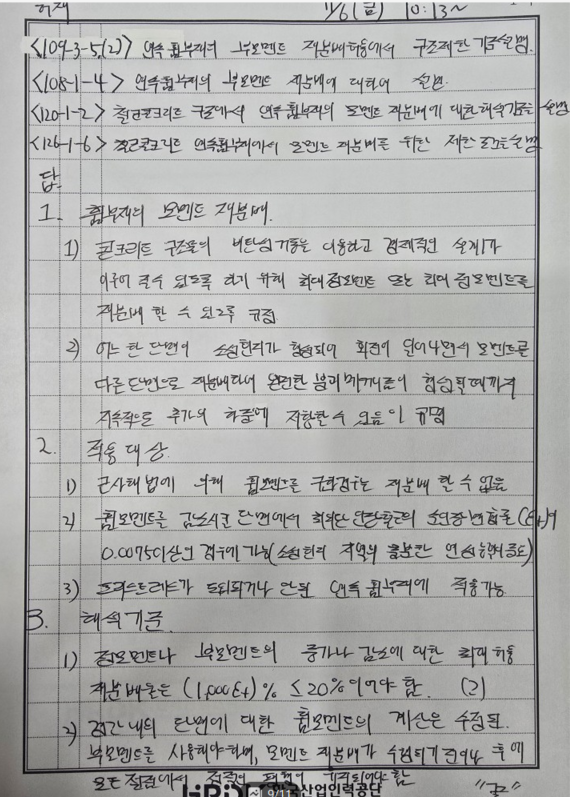 11/6 (금) 10:13~
<109-3-5(2)> 연속 휨부재의 부모멘트 재분배
<108-1-4> 연속휨부재의 부모멘트 재분배에 대하여 설명
<120-1-2> 철근콘크리트 구조에서 연속휨부재의 모멘트 재분배에 대한 해석기준을 설명
<126-1-6> 철근콘크리트 연속휨부재에서 모멘트 재분배를 위한 제한조건을 설명
답
1. 휨부재의 모멘트 재분배
1) 콘크리트 구조물의 비탄성거동을 이용하고 경제적인 설계가
이루어 질수 있도록 하기 위해 최대정모멘트 또는 최대 부모멘트를
재분배 할 수 있도록 규정
2) 어느 한 단면에 소성힌지가 형성되어 회전이 일어나면서 모멘트를
다른단면으로 재분배되어 완전한 붕괴메카니즘이 형성될때까지
지속적으로 추가의 하중에 저항할 수 있음이
2. 적용대상
1) 근사해법에 의해 휨모멘트를 구한경우는 재분배 할 수 없음
2) 휨모멘트를 감소시킬 단면에서 최외단 인장철근의 순인장변형률(Et)이
0.0075이상인 경우에 가능(소성힌지 지역의 충분한 연성능력 필요)
3) 프리스트레스가 도입되거나 안된 연속 휨부재에 적용가능
3. 해석기준
1) 정모멘트나 부모멘트의 증가나 감소에 대한 최대허용
재분배율은 (1,000Et)% ≤ 20% 이어야 함.
2) 경간내의 단면에 대한 휨모멘트의 계산은 수정된
부모멘트를 사용해야하며, 모멘트 재분배가 이루어진 후에
모든 절점에서 정적 평형이 유지되어야 함
한국산업인력공단 "끝"